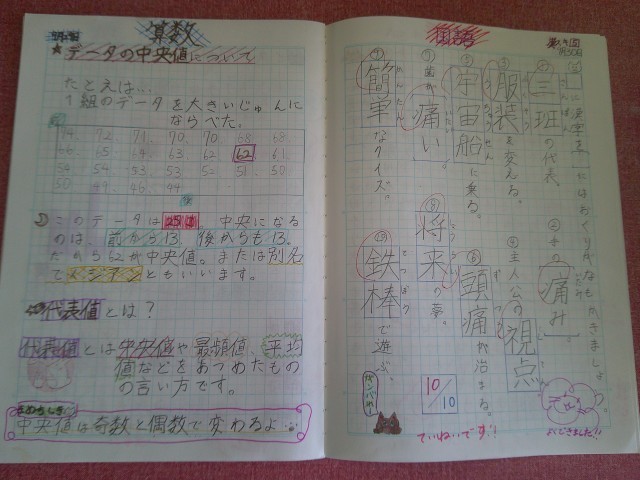 算数
★データの中央値について
たとえば…
1組のデータを大きいじゅんに
ならべた。
74 72 71 70 70 68 68
66 65 64 63 62 62 61
54 54 53 53 52 51 50
50 49 46 44
このデータは25コ。中央になる
のは、前から13、後からも13、
だから62が中央値。または別名
でメジアンともいいます。
代表値とは?
代表値とは中央値や最頻値、平均
値などをあつめたもの
の言い方です。
まめちしき
中央値は奇数と偶数で変わるよ
国語
に漢字を
にはおくりがなもかきましょう。
① 三班の代表。
② 心の痛み。
③ 服装を変える。
④ 主人公の視点
⑤ 宇宙船に乗る。
⑥ 頭痛が治まる。
⑦ 歯が痛い。
⑧ 将来の夢。
⑨ 簡単なクイズ。
⑩ 鉄棒で遊ぶ。
10/10
ガンバレー
ていねいです!!
よくできました!!